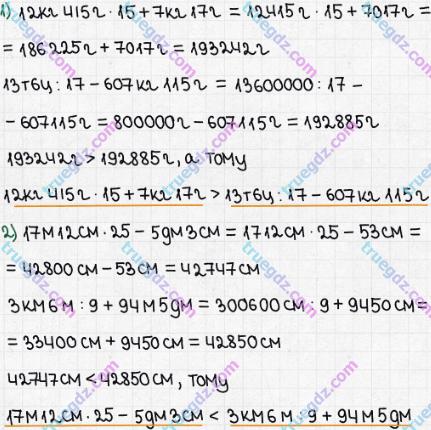 1) 12кг 415г · 15 + 7кг 17г = 12415г · 15 + 7017г =
= 186225г + 7017г = 193242г
13т6ц : 17 - 607кг 115г = 13600000 : 17 -
- 607115г = 800000г - 607115г = 192885г
193242г > 192885г, а тому
12кг 415г · 15 + 7кг 17г > 13т6ц : 17 - 607кг 115г
2) 17м 12см · 25 - 5дм 3см = 1712см · 25 - 53см =
= 42800см - 53см = 42747см
3км 6м : 9 + 94м 5дм = 300600см : 9 + 9450см =
= 33400см + 9450см = 42850см
42747см < 42850см, тому
17м 12см · 25 - 5дм 3см < 3км 6м : 9 + 94м 5дм